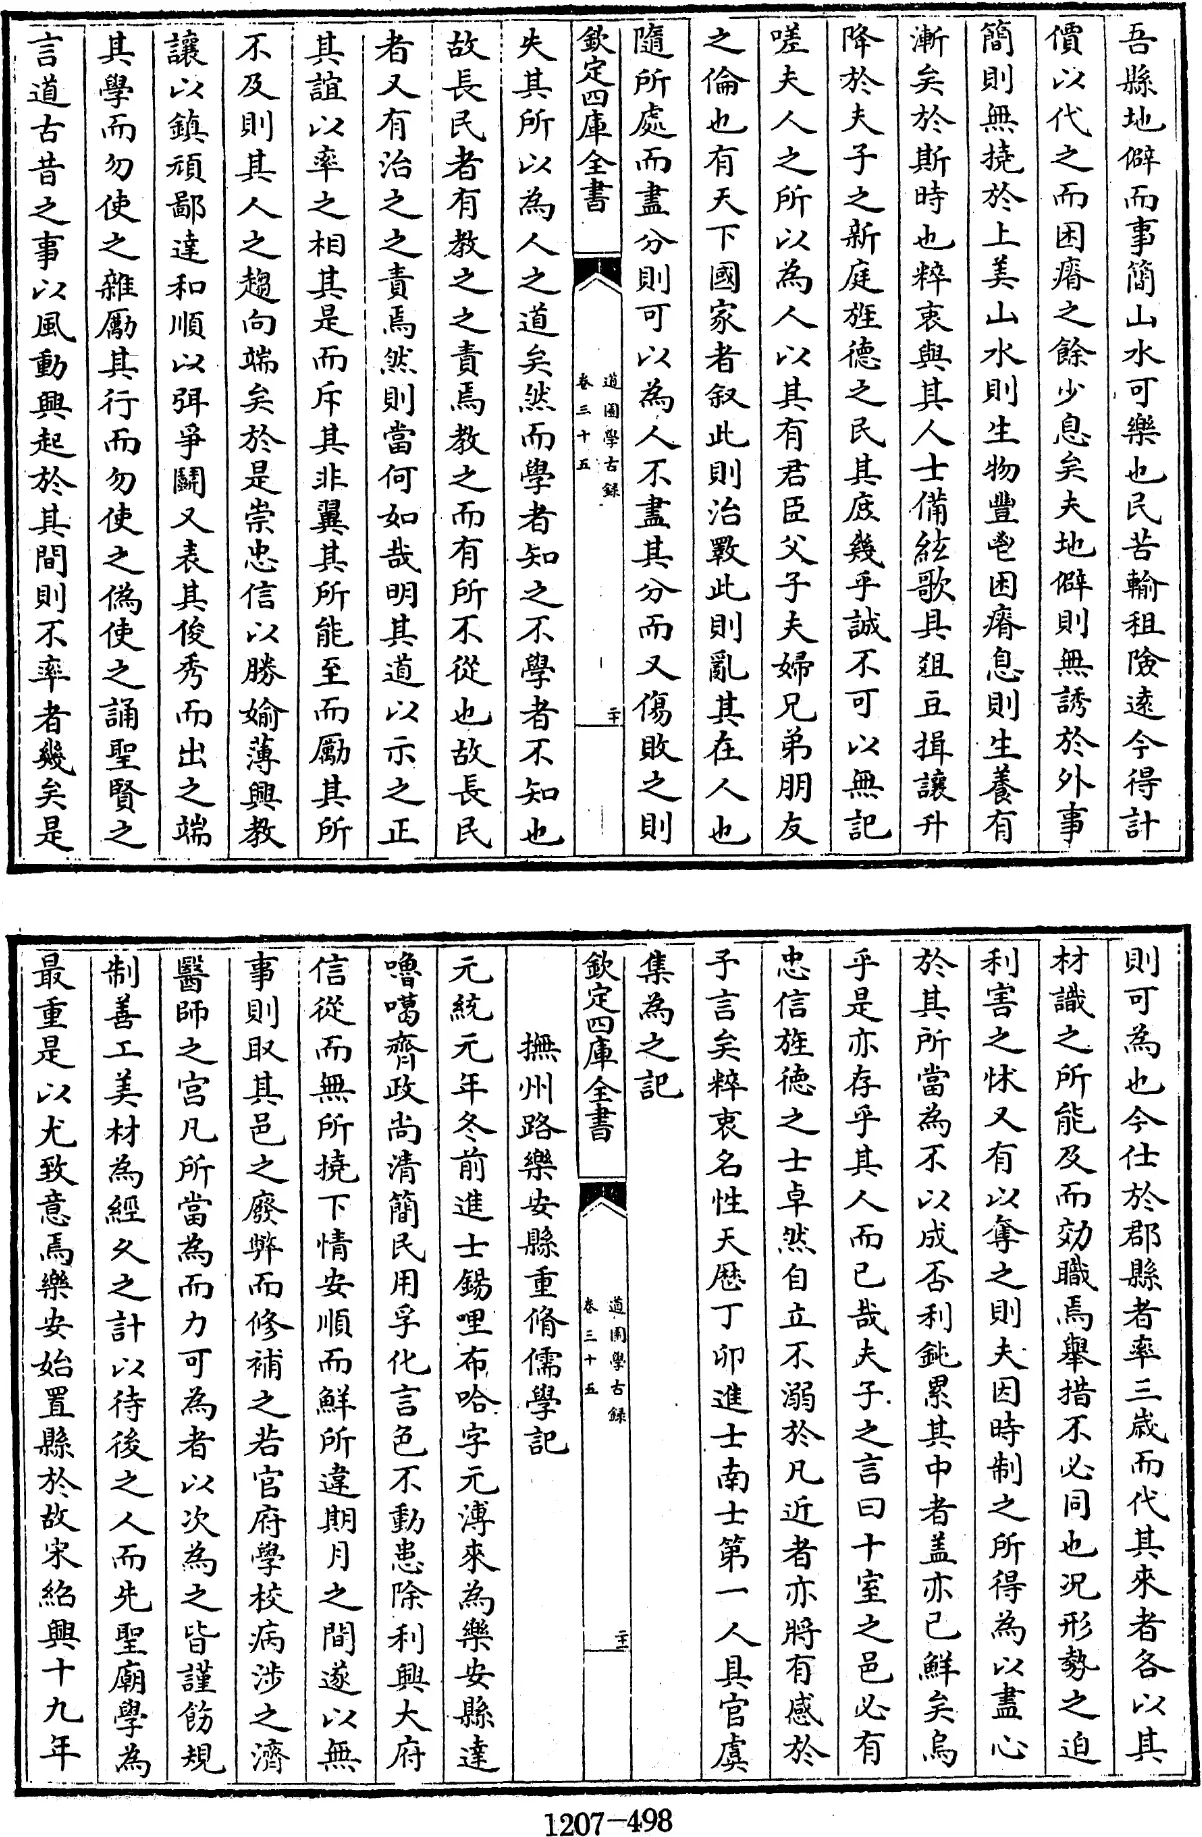 吾縣地僻而事簡山水可樂也民苦輸租險逺今得計
價以代之而困瘠之餘少息矣夫地僻則無誘於外事
簡則無撓於上美山水則生物豐邑困瘠息則生養有
漸矣於斯時也粹衷與其人士備絃歌具俎豆揖讓升
降於夫子之新庭旌德之民其庶幾乎誠不可以無記
嗟夫人之所以為人以其有君臣父子夫婦兄弟朋友
之倫也有天下國家者叙此則治斁此則亂其在人也
隨所處而盡分則可以為人不盡其分而又傷敗之則
欽定四庫全書
道園學古録
卷三十五
二十
失其所以為人之道矣然而學者知之不學者不知也
故長民者有教之之責焉教之而有所不從也故長民
者又有治之之責焉然則當何如哉明其道以示之正
其誼以率之相其是而斥其非翼其所能至而勵其所
不及則其人之趨向端矣於是崇忠信以勝媮薄興教
讓以鎮頑鄙達和順以弭爭鬭又表其俊秀而出之端
其學而勿使之雜勵其行而勿使之偽使之誦聖賢之
言道古昔之事以風動興起於其間則不率者幾矣是
則可為也今仕於郡縣者率三歳而代其來者各以其
材識之所能及而効職焉舉措不必同也況形勢之迫
利害之怵又有以奪之則夫因時制之所得為以盡心
於其所當為不以成否利鈍累其中者盖亦已鮮矣烏
乎是亦存乎其人而已哉夫子之言曰十室之邑必有
忠信旌德之士卓然自立不溺於凡近者亦將有感於
予言矣粹衷名性天厯丁卯進士南士第一人具官虞
集為之記
欽定四庫全書
道園學古録
卷三十五
二十一
撫州路樂安縣重脩儒學記
元統元年冬前進士錫哩布哈字元溥來為樂安縣達
嚕噶齊政尚清簡民用孚化言色不動患除利興大府
信從而無所撓下情安順而鮮所違期月之間遂以無
事則取其邑之廢弊而修補之若官府學校病涉之濟
醫師之宫凡所當為而力可為者以次為之皆謹飭規
制善工美材為經久之計以待後之人而先聖廟學為
最重是以尤致意焉樂安始置縣於故宋紹興十九年
1207-498